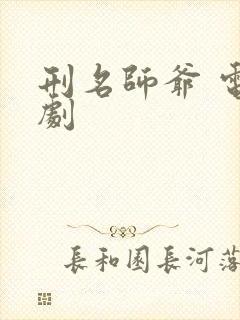 刑名師爺 電
劇
長和園長河落